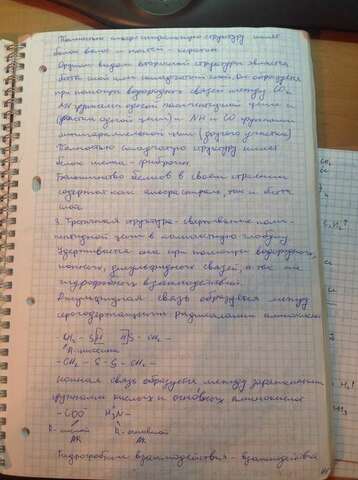 Полностью альфа спиральную структуру имеет
белок волос и ногтей - кератин
Другим видом вторичной структуры является
бета слой или складчатый слой. Он образуется
при помощи водородных связей между CO и
NH группами одной полипептидной цепи и
(участка одной цепи) и NH и CO группами
антипараллельной цепи (другого участка)
Полностью складчатую структуру имеет
белок шелка - фиброин
Большинство белков в своём строении
содержат как альфа спираль, так и бета
слой
3. Третичная структура - свертывание поли-
пептидной цепи в компактную глобулу
Удерживается она при помощи водородных,
ионных, дисульфидных связей, а так же
гидрофобных взаимодействий.
Дисульфидная связь образуется между
серосодержащими радикалами аминокислот
- CH₂ - SH HS - CH₂ -
R-цистеин
- CH₂ - S - S - CH₂ -
Ионная связь образуется между заряженными
группами кислых и основных аминокислот
- COO⁻ H₃N -
R-кислой R-основной
АК АК
Гидрофобные взаимодействия - взаимодейств